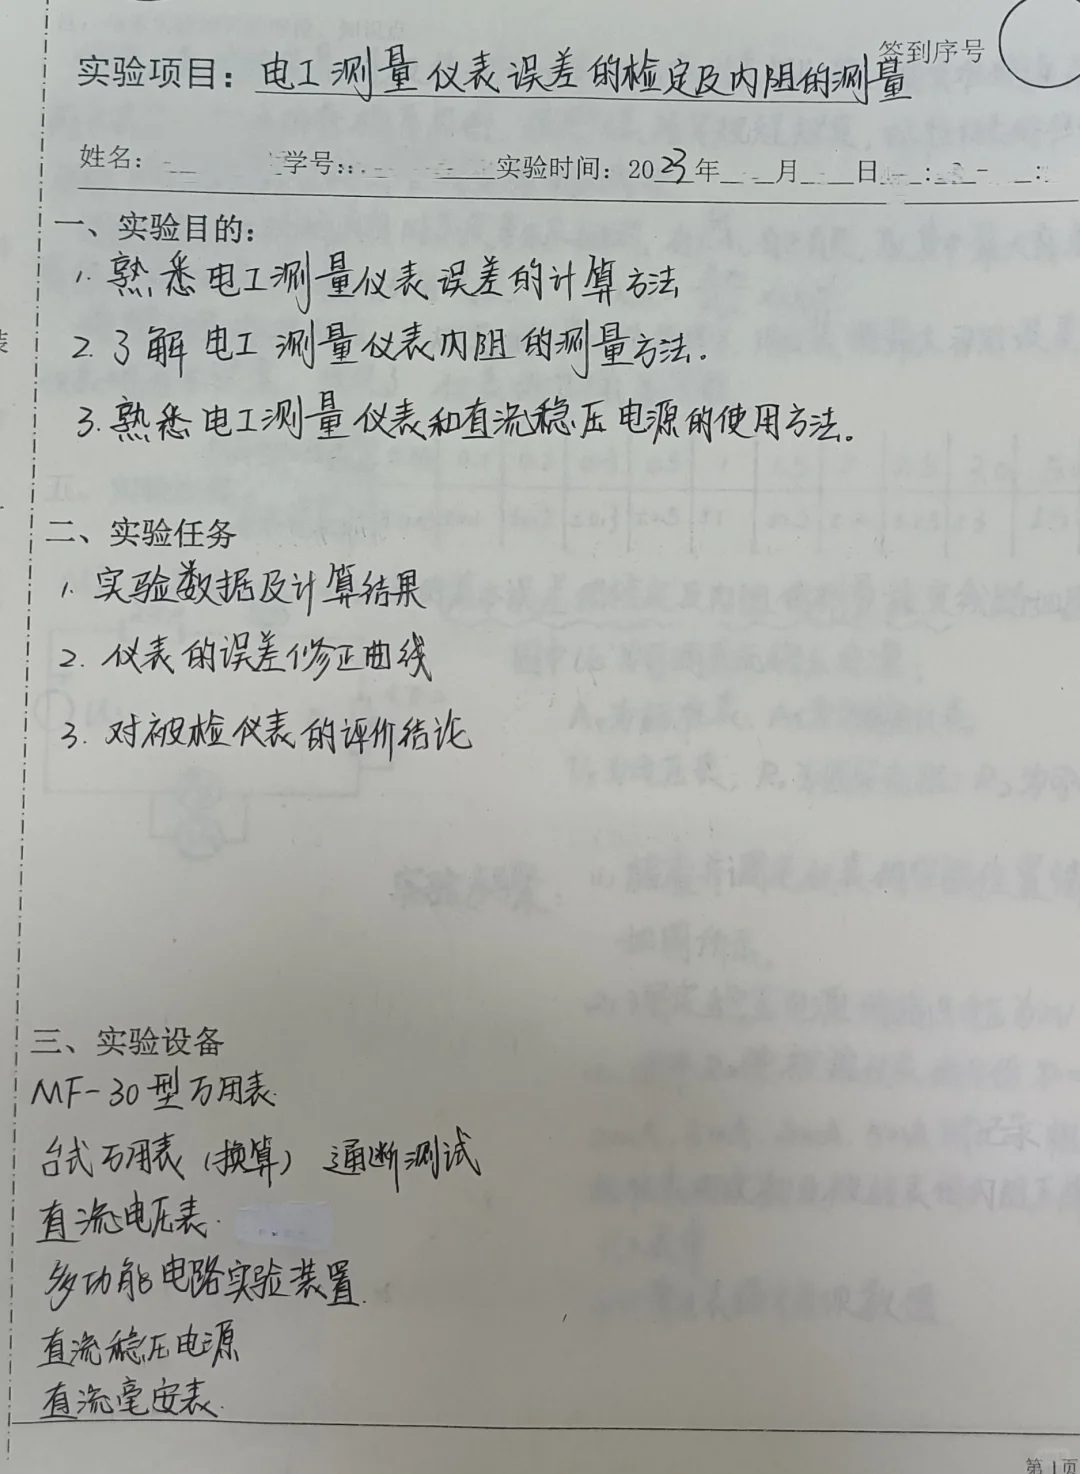 签到序号
实验项目：电工测量仪表误差的检定及内阻的测量
姓名： 学号： 实验时间：2023年 月 日
一、实验目的：
1. 熟悉电工测量仪表误差的计算方法
2. 了解电工测量仪表内阻的测量方法。
3. 熟悉电工测量仪表和直流稳压电源的使用方法。
二、实验任务
1. 实验数据及计算结果
2. 仪表的误差修正曲线
3. 对被检仪表的评价结论
三、实验设备
MF-30型万用表.
台式万用表（换算） 通断测试
直流电压表.
多功能电路实验装置.
直流稳压电源
直流毫安表.
第1页